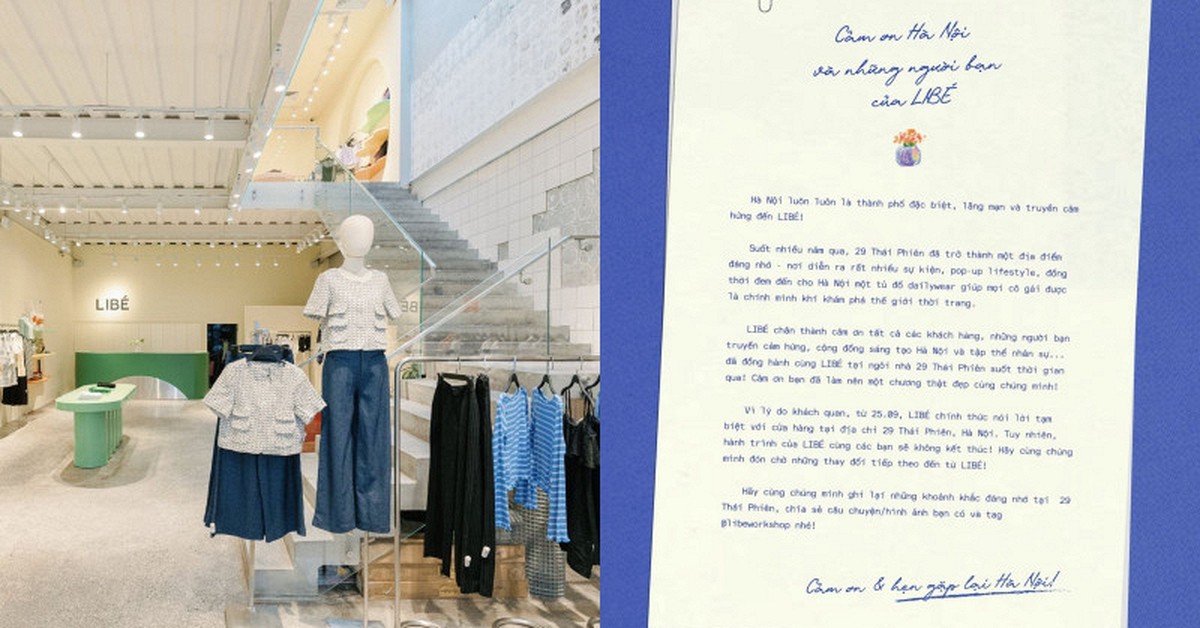 LIBÉ
Cảm ơn Hà Nội
và những người bạn
của LIBÉ
Hà Nội luôn luôn là thành phố đặc biệt, lãng mạn và truyền cảm
hứng đến LIBÉ!
Suốt nhiều năm qua, 29 Thái Phiên đã trở thành một địa điểm
đáng nhớ - nơi diễn ra rất nhiều sự kiện, pop-up lifestyle, đồng
thời đem đến cho Hà Nội một tủ đồ dailywear giúp mọi cô gái được
là chính mình khi khám phá thế giới thời trang.
LIBÉ chân thành cảm ơn tất cả các khách hàng, những người bạn
truyền cảm hứng, cộng đồng sáng tạo Hà Nội và tập thể nhân sự...
đã đồng hành cùng LIBÉ tại ngôi nhà 29 Thái Phiên suốt thời gian
qua! Cảm ơn bạn đã làm nên một chương thật đẹp cùng chúng mình!
Vì lý do khách quan, từ 25.09, LIBÉ chính thức nói lời tạm
biệt với cửa hàng tại địa chỉ 29 Thái Phiên, Hà Nội. Tuy nhiên,
hành trình của LIBÉ cùng các bạn sẽ không kết thúc! Hãy cùng chúng
mình đón chờ những thay đổi tiếp theo đến từ LIBÉ!
Hãy cùng chúng mình ghi lại những khoảnh khắc đáng nhớ tại 29
Thái Phiên, chia sẻ câu chuyện/hình ảnh bạn có và tag
@libeworkshop nhé!
Cảm ơn & hẹn gặp lại Hà Nội!